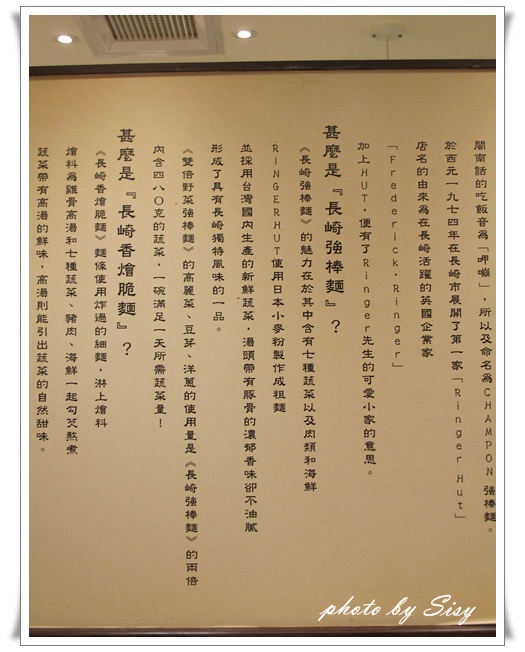 閩南話的吃飯音為「呷嘣」，所以及命名為CHAMPON 強棒麵。
於西元一九七四年在長崎市展開了第一家「Ringer Hut」
店名的由來為在長崎活躍的英國企業家
「Frederick・Ringer」
加上HUT，便有了Ringer先生的可愛小家的意思。
甚麼是『長崎強棒麵』？
《長崎強棒麵》的魅力在於其中含有七種蔬菜以及肉類和海鮮
RINGERHUT使用日本小麥粉製作成粗麵
並採用台灣國內生產的新鮮蔬菜，湯頭帶有豚骨的濃郁香味卻不油膩
形成了具有長崎獨特風味的一品。
《雙倍野菜強棒麵》的高麗菜、豆芽、洋蔥的使用量是《長崎強棒麵》的兩倍
內含四八０克的蔬菜，一碗滿足一天所需蔬菜量！
甚麼是『長崎香燴脆麵』？
《長崎香燴脆麵》麵條使用炸過的細麵，淋上燴料
燴料為雞骨高湯和七種蔬菜、豬肉、海鮮一起勾芡熬煮
蔬菜帶有高湯的鮮味，高湯則能引出蔬菜的自然甜味。
photo by Sisy